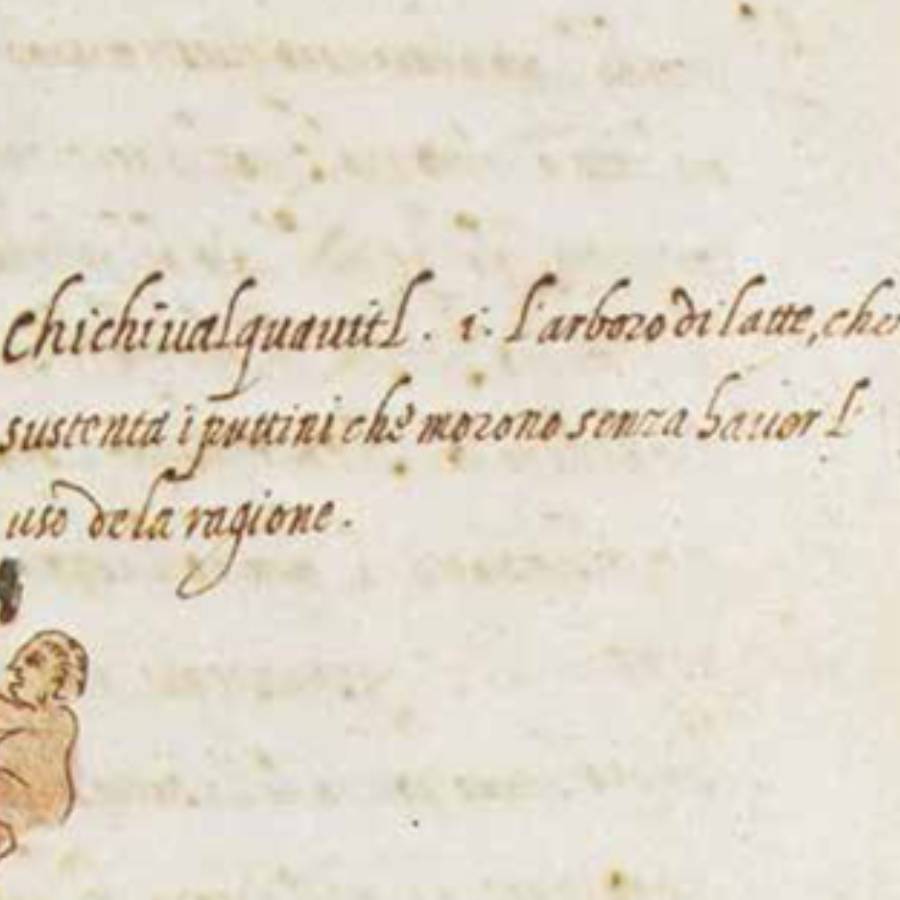 Chichiualquauitl. i. l'arboro di latte, che
sustenta i puttini che morono senza hauer l'
uso dela ragione.